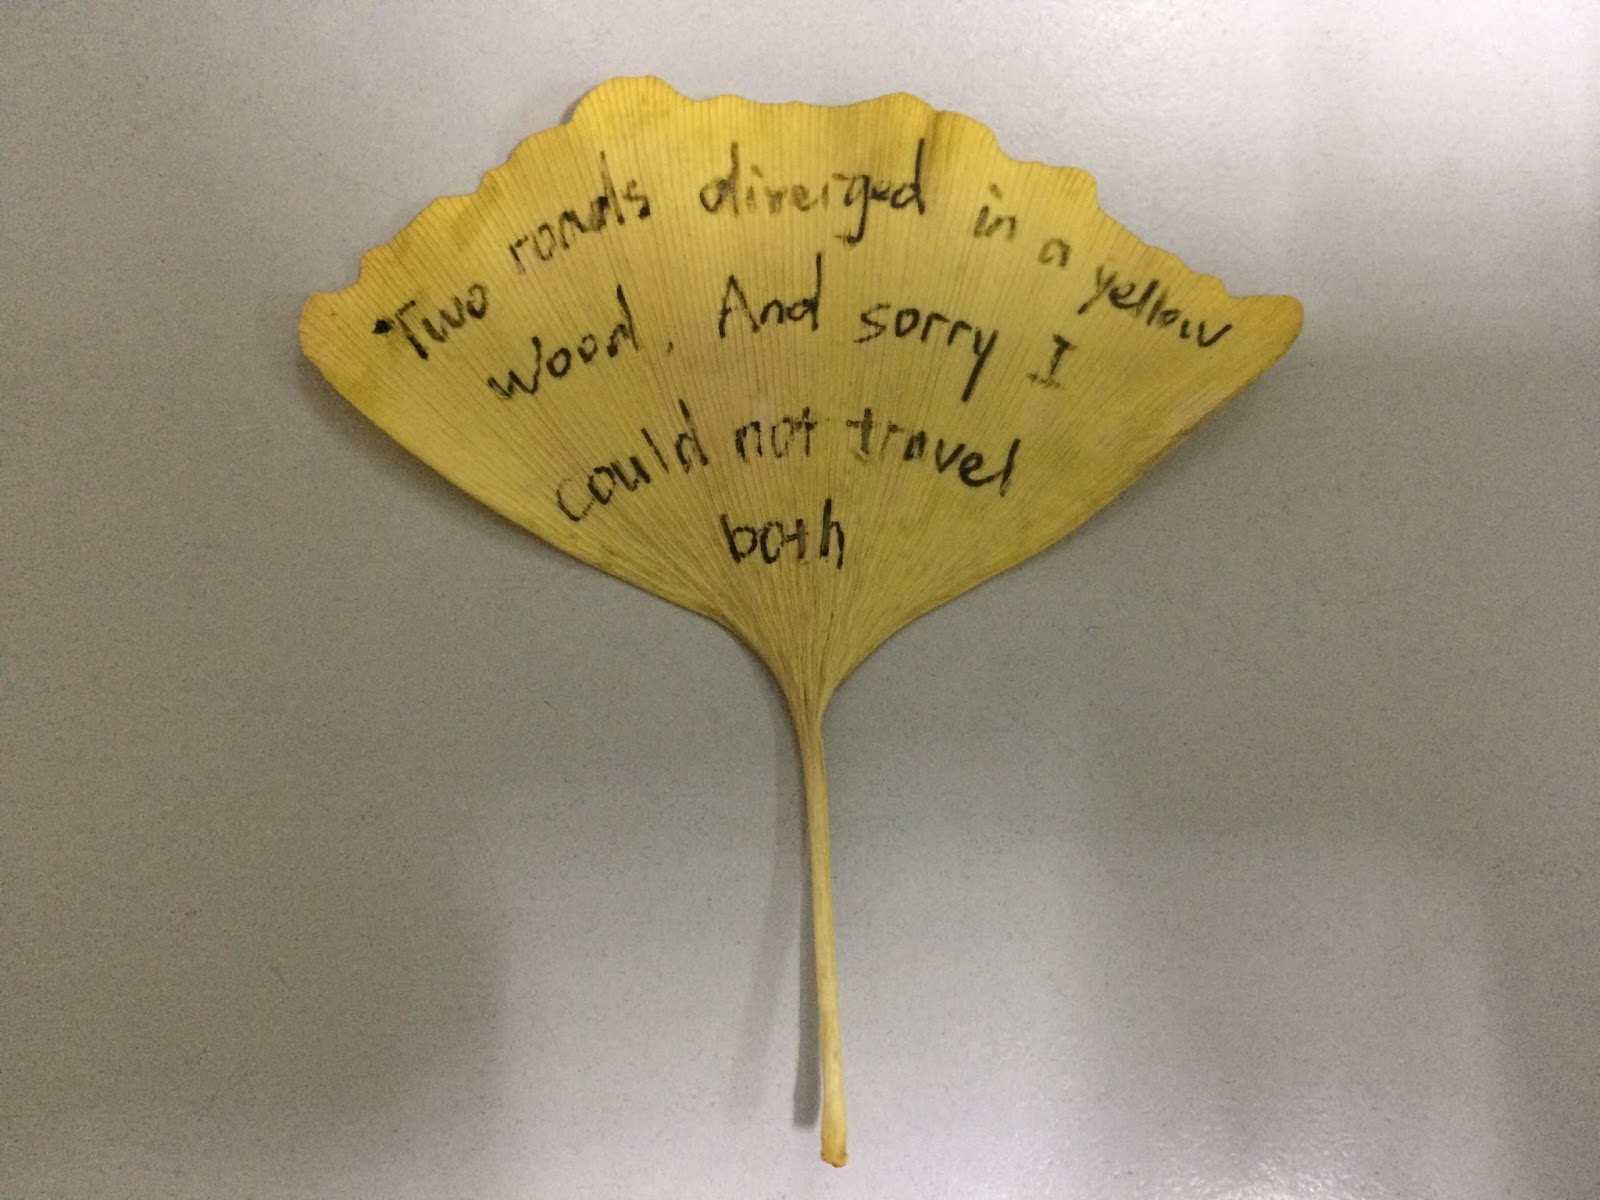 Two roads diverged in a yellow
wood. And sorry I
could not travel
both